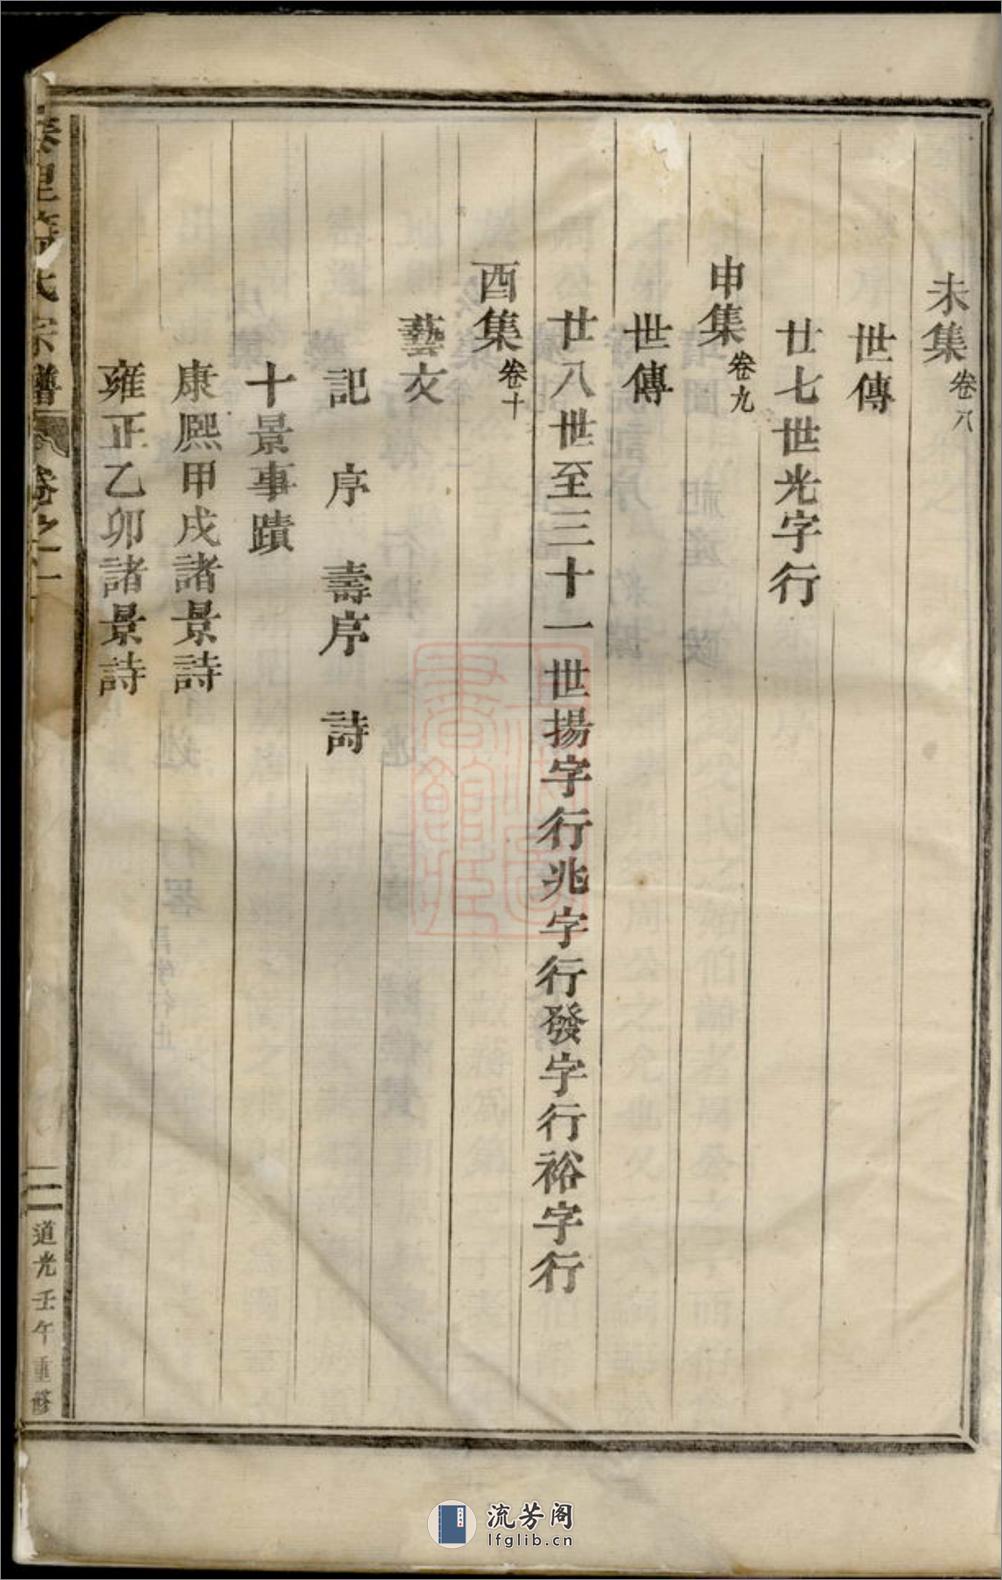 未集卷八
世傳
廿七世光字行
申集卷九
世傳
廿八世至三十一世揚字行兆字行發字行裕字行
酉集卷十
藝文
記 序 壽序 詩
十景事蹟
康熙甲戌諸景詩
雍正乙卯諸景詩
里 氏宗譜 卷之一 二 道光壬午重修
流芳阁
lfglib.cn